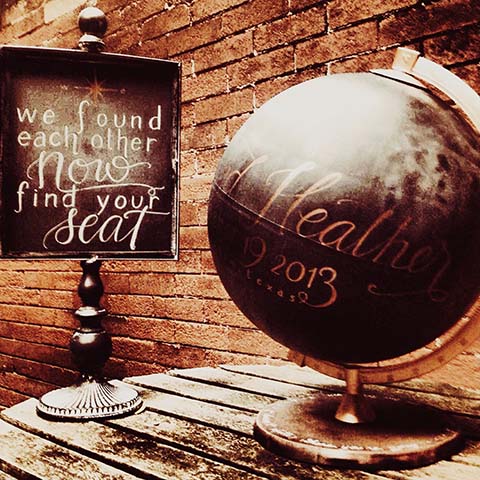 we found
each other
Now
find your
seat
Heather
19 2013
Texas